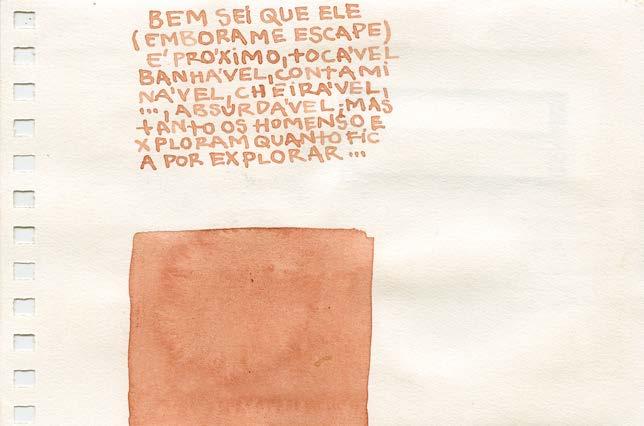 BEM SEI QUE ELE
(EMBORA ME ESCAPE)
É PRÓXIMO, TOCÁVEL
BANHÁVEL, CONTAMI
NÁVEL, CHEIRÁVEL,
..., ABSURDÁVEL; MAS
TANTO OS HOMENS O E
XPLORAM QUANTO FIC
A POR EXPLORAR...